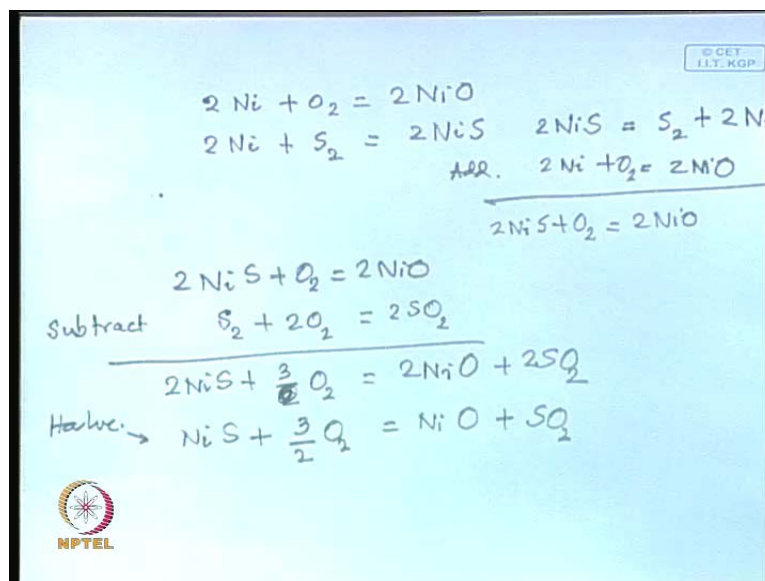 © CET
I.I.T. KGP
2 Ni + O₂ = 2 NiO
2 Ni + S₂ = 2 NiS    2 NiS = S₂ + 2 N
Add.    2 Ni + O₂ = 2 NiO
2 NiS + O₂ = 2 NiO
2 NiS + O₂ = 2 NiO
Subtract    S₂ + 2O₂ = 2SO₂
2NiS + 3 O₂ = 2NiO + 2SO₂
Halve. → NiS + 3/2 O₂ = NiO + SO₂
NPTEL